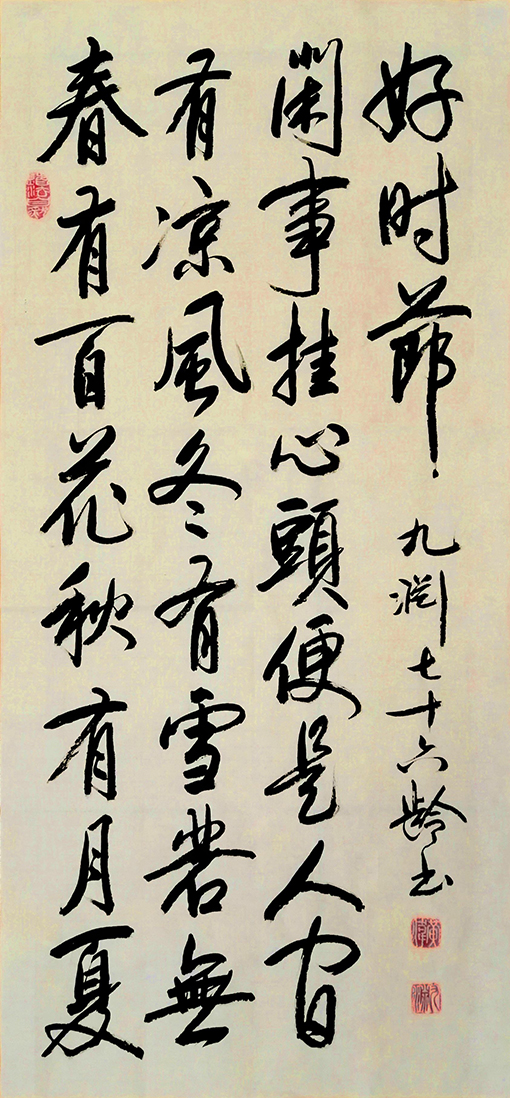 春有百花秋有月夏
有凉風冬有雪若無
閑事挂心頭便是人间
好时節
九渊七十六齡书